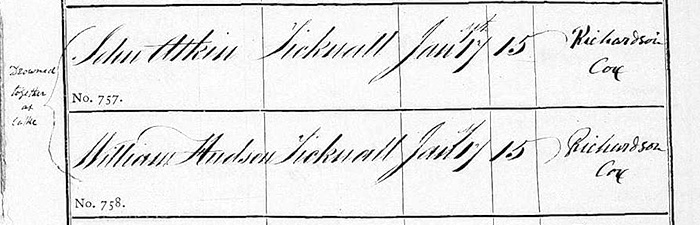 John Atkin Ticknall Jany 17th 15 Richardson
Cox
No. 757.
Drowned
together
at
Calke
William Hudson Ticknall Jany 17 15 Richardson
Cox
No. 758.